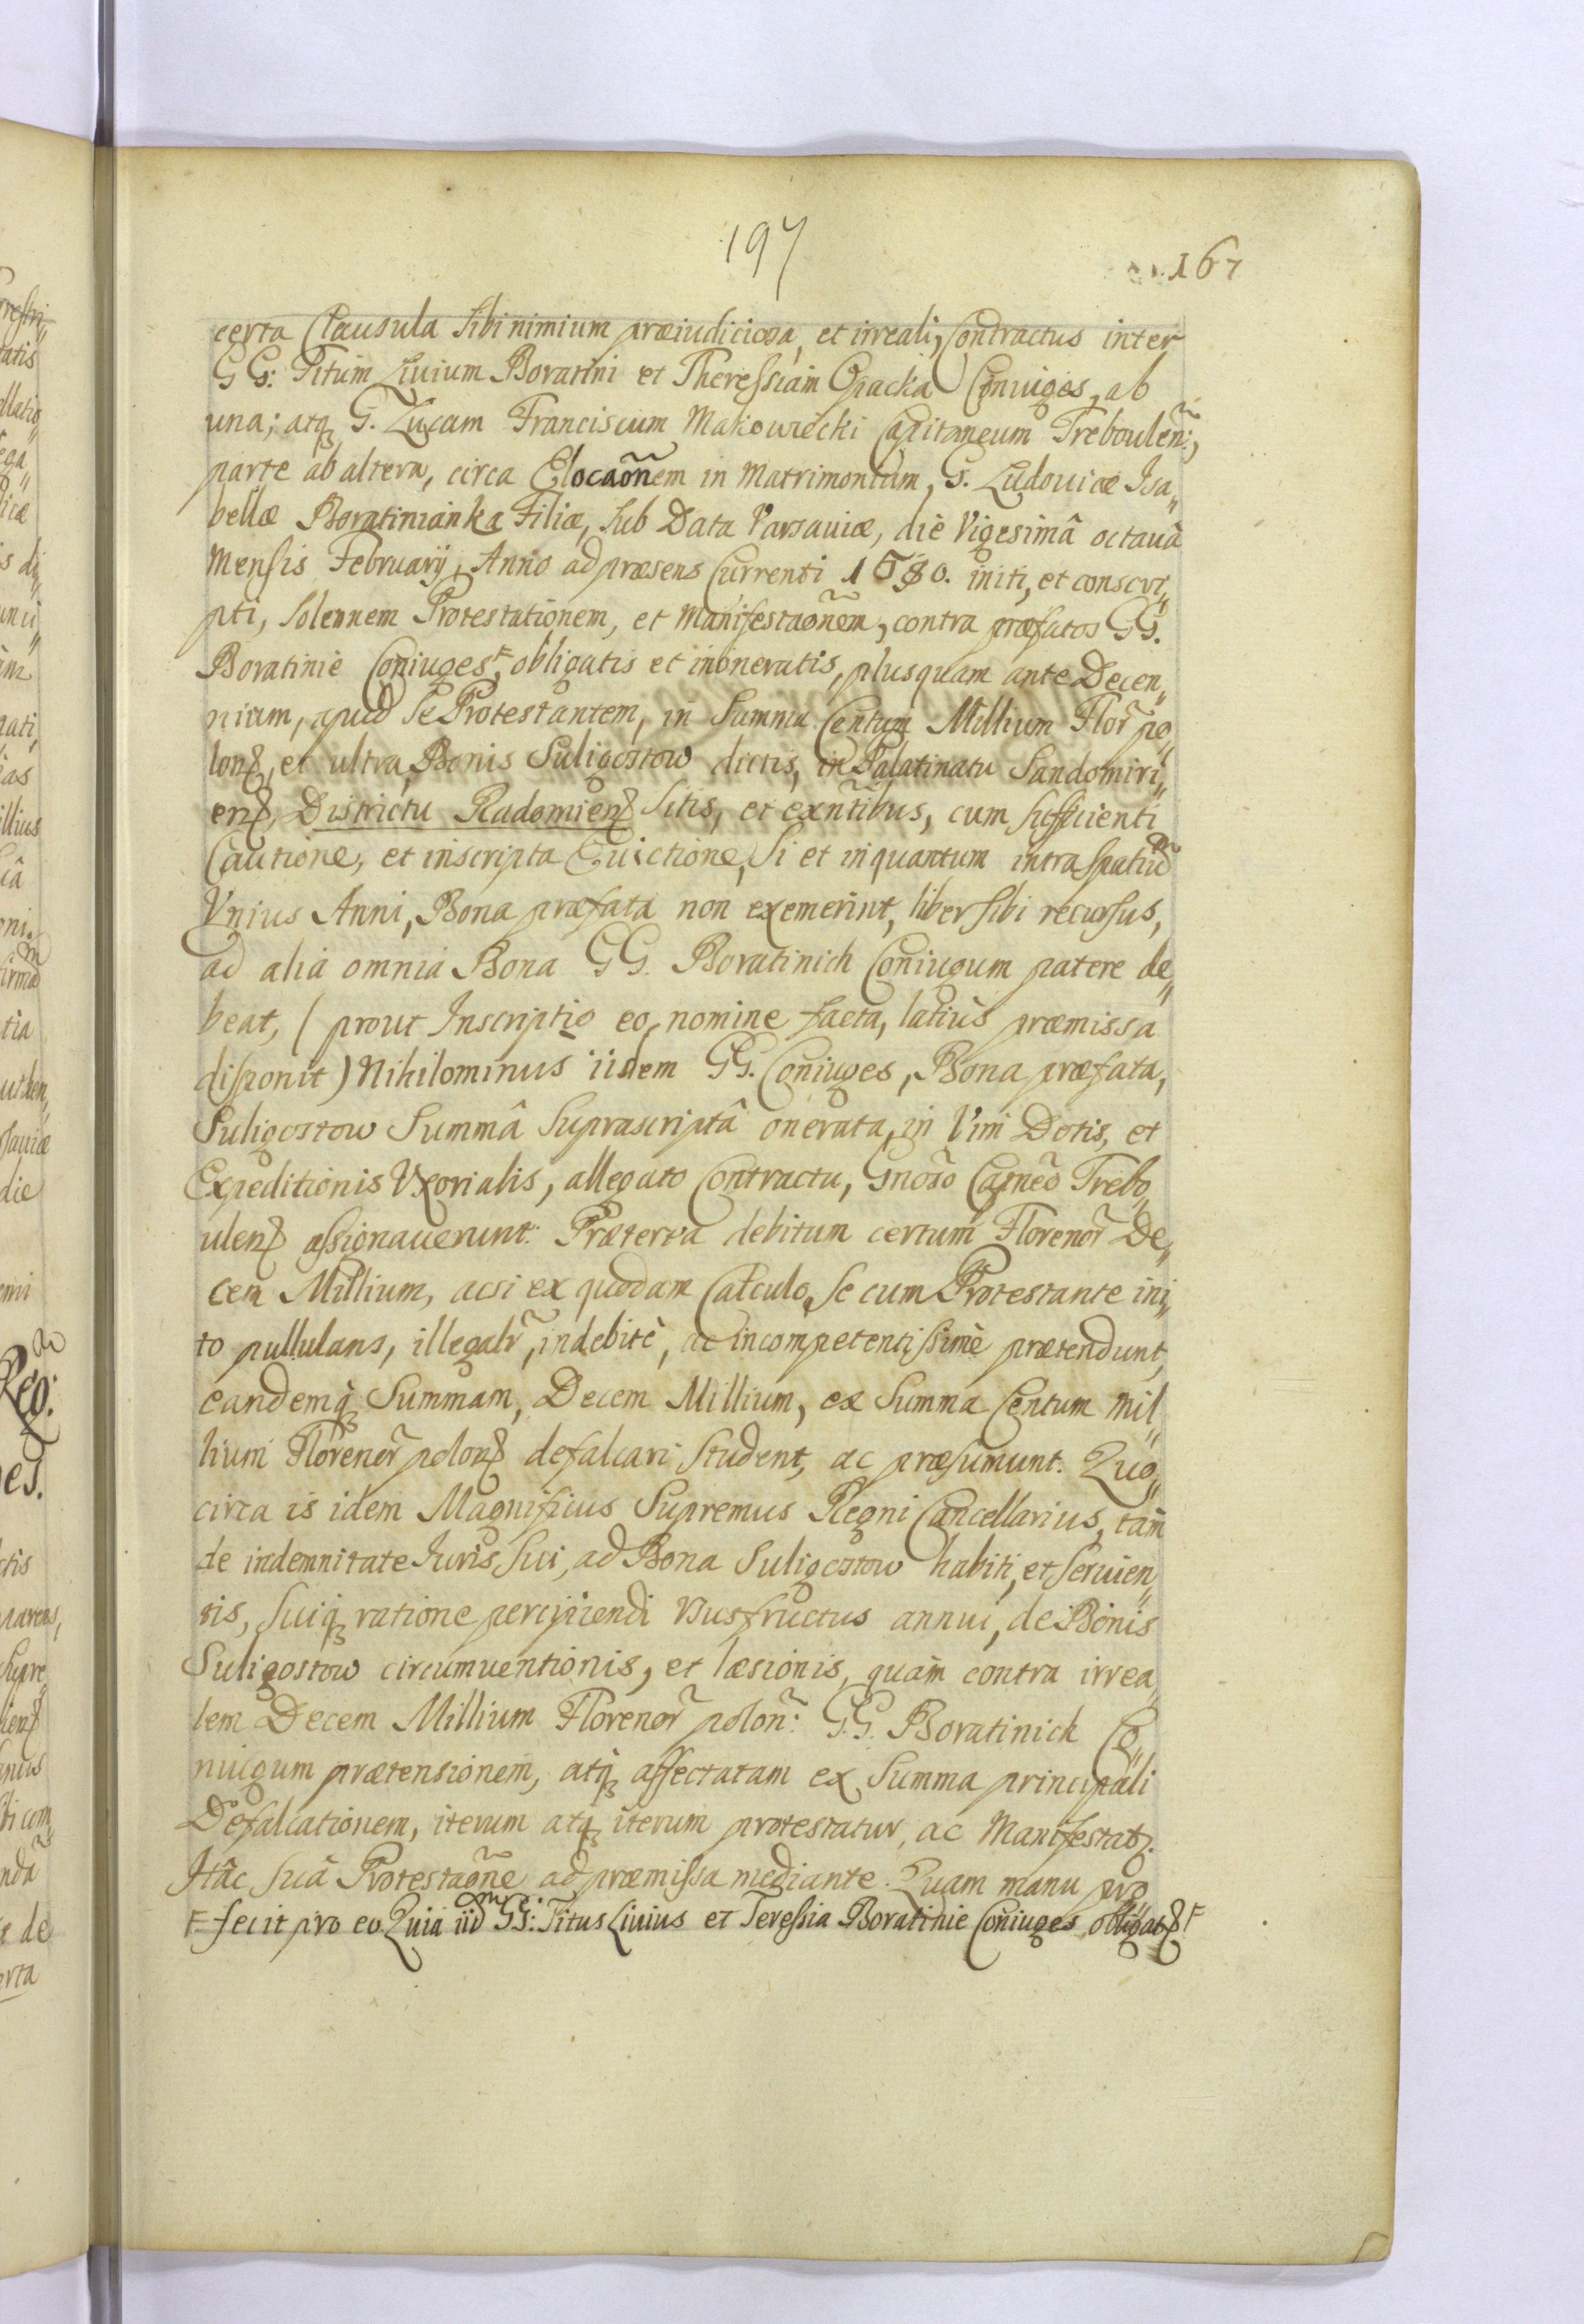 197
167
certa Clausula sibi nimium præiudiciosa, et irreali, Contractus inter
GG: Titum Liuium Boratini et Theressiam Opacka Coniuges, ab
una; atq3 G. Lucam Franciscum Makowiecki Capitaneum Treboulen̄:,
parte ab altera, circa Elocaōnem in Matrimonium, G. Ludouicæ Isa„
bellæ Boratinianka Filiæ, sub Data Varsauiæ, die Vigesimâ octauâ
Mensis Februarij, Anno ad præsens Currenti 1680. initi, et conscri„
pti, solennem Protestationem, et Manifestaōnem, contra præfatos GG.
Boratinie Coniuges,⸗ obligatis et inoneratis, plusquam ante Decen„
nium, apud se Protestantem, in Summa Centum Millium Flor̃ po„
lonꝭ, et ultra, Bonis Suligostow dictis, in Palatinatu Sandomiri„
enꝭ, Districtu Radomienꝭ sitis, et exñtibus, cum sufficienti
Cautione, et inscripta Euictione, si et inquantum intra spatiũ
Vnius Anni, Bona præfata non exemerint, liber sibi recursus,
ad alia omnia Bona GG. Boratinich Coniugum patere de„
beat, (prout Inscriptio eo nomine facta, latius præmissa
disponit) Nihilominus iidem GG. Coniuges, Bona præfata,
Suligostow Summâ suprascriptâ onerata, in Vim Dotis, et
Expeditionis Vxorialis, allegato Contractu, Gnōso Capñeo Trebo„
ulenꝭ assignauerunt. Præterea debitum certum Florenor̃ De„
cem Millium, acsi ex quodam Calculo, se cum Protestante ini„
to pullulans, illegalr̃, indebitè, ac incompetentissimè prætendunt,
eandemq3 Summam, Decem Millium, ex Summa Centum Mil„
lium Florenor̃ polonꝭ defalcari student, ac præsumunt. Quo„
circa is idem Magnificus Supremus Regni Cancellarius, tam
de indemnitate Iuris sui, ad Bona Suligostow habiti, et seruien„
tis, suiq3 ratione percipiendi Vusfructus annui, de Bonis
Suligostow circumuentionis, et læsionis, quam contra irrea„
lem Decem Millium Florenor̃ polon̄: GG. Boratinich Co„
niugum prætensionem, atq3 affectatam ex Summa principali
Defalcationem, iterum atq3 iterum protestatur, ac Manifestatꝭ.
Hâc suâ Protestaōne ad præmissa mediante. Quam manu pro„
⸗ fecit pro eo Quia iid̃m GG: Titus Liuius et Teressia Boratinie Coniuges obligatꝭ⸗